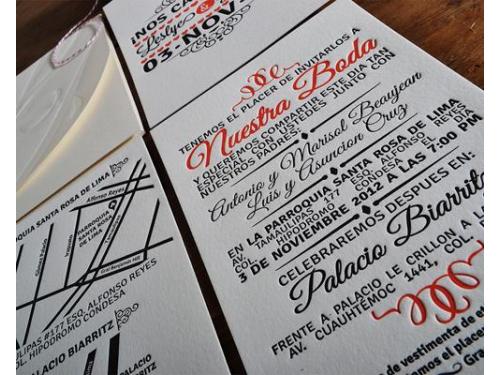 ¡NOS CA
Leslye &
03-NOV.
TENEMOS EL PLACER DE INVITARLOS A
Nuestra Boda
Y QUEREMOS COMPARTIR ESTE DIA TAN
ESPECIAL CON USTEDES JUNTO CON
NUESTROS PADRES:
Antonio y Marisol Beaujean
Luis y Asuncion Cruz
EN LA PARROQUIA SANTA ROSA DE LIMA
AV. TAMAULIPAS 177 ESQ. ALFONSO REYES
COL. HIPODROMO CONDESA EL DIA
3 DE NOVIEMBRE 2012 A LAS 7:00 PM
CELEBRAREMOS DESPUES EN:
Palacio Biarritz
FRENTE A PALACIO LE CRILLON A LA
AV. CUAUHTEMOC 1441, COL.
de vestimenta de et
emos el placer
Gra
QUIA SANTA ROSA DE LIMA
Alfonso Reyes
PARROQUIA
SANTA ROSA
DE LIMA
Gral Benjamín Hill
ULIPAS #177 ESQ. ALFONSO REYES
COL. HIPODROMO CONDESA
LACIO BIARRITZ
PALACIO